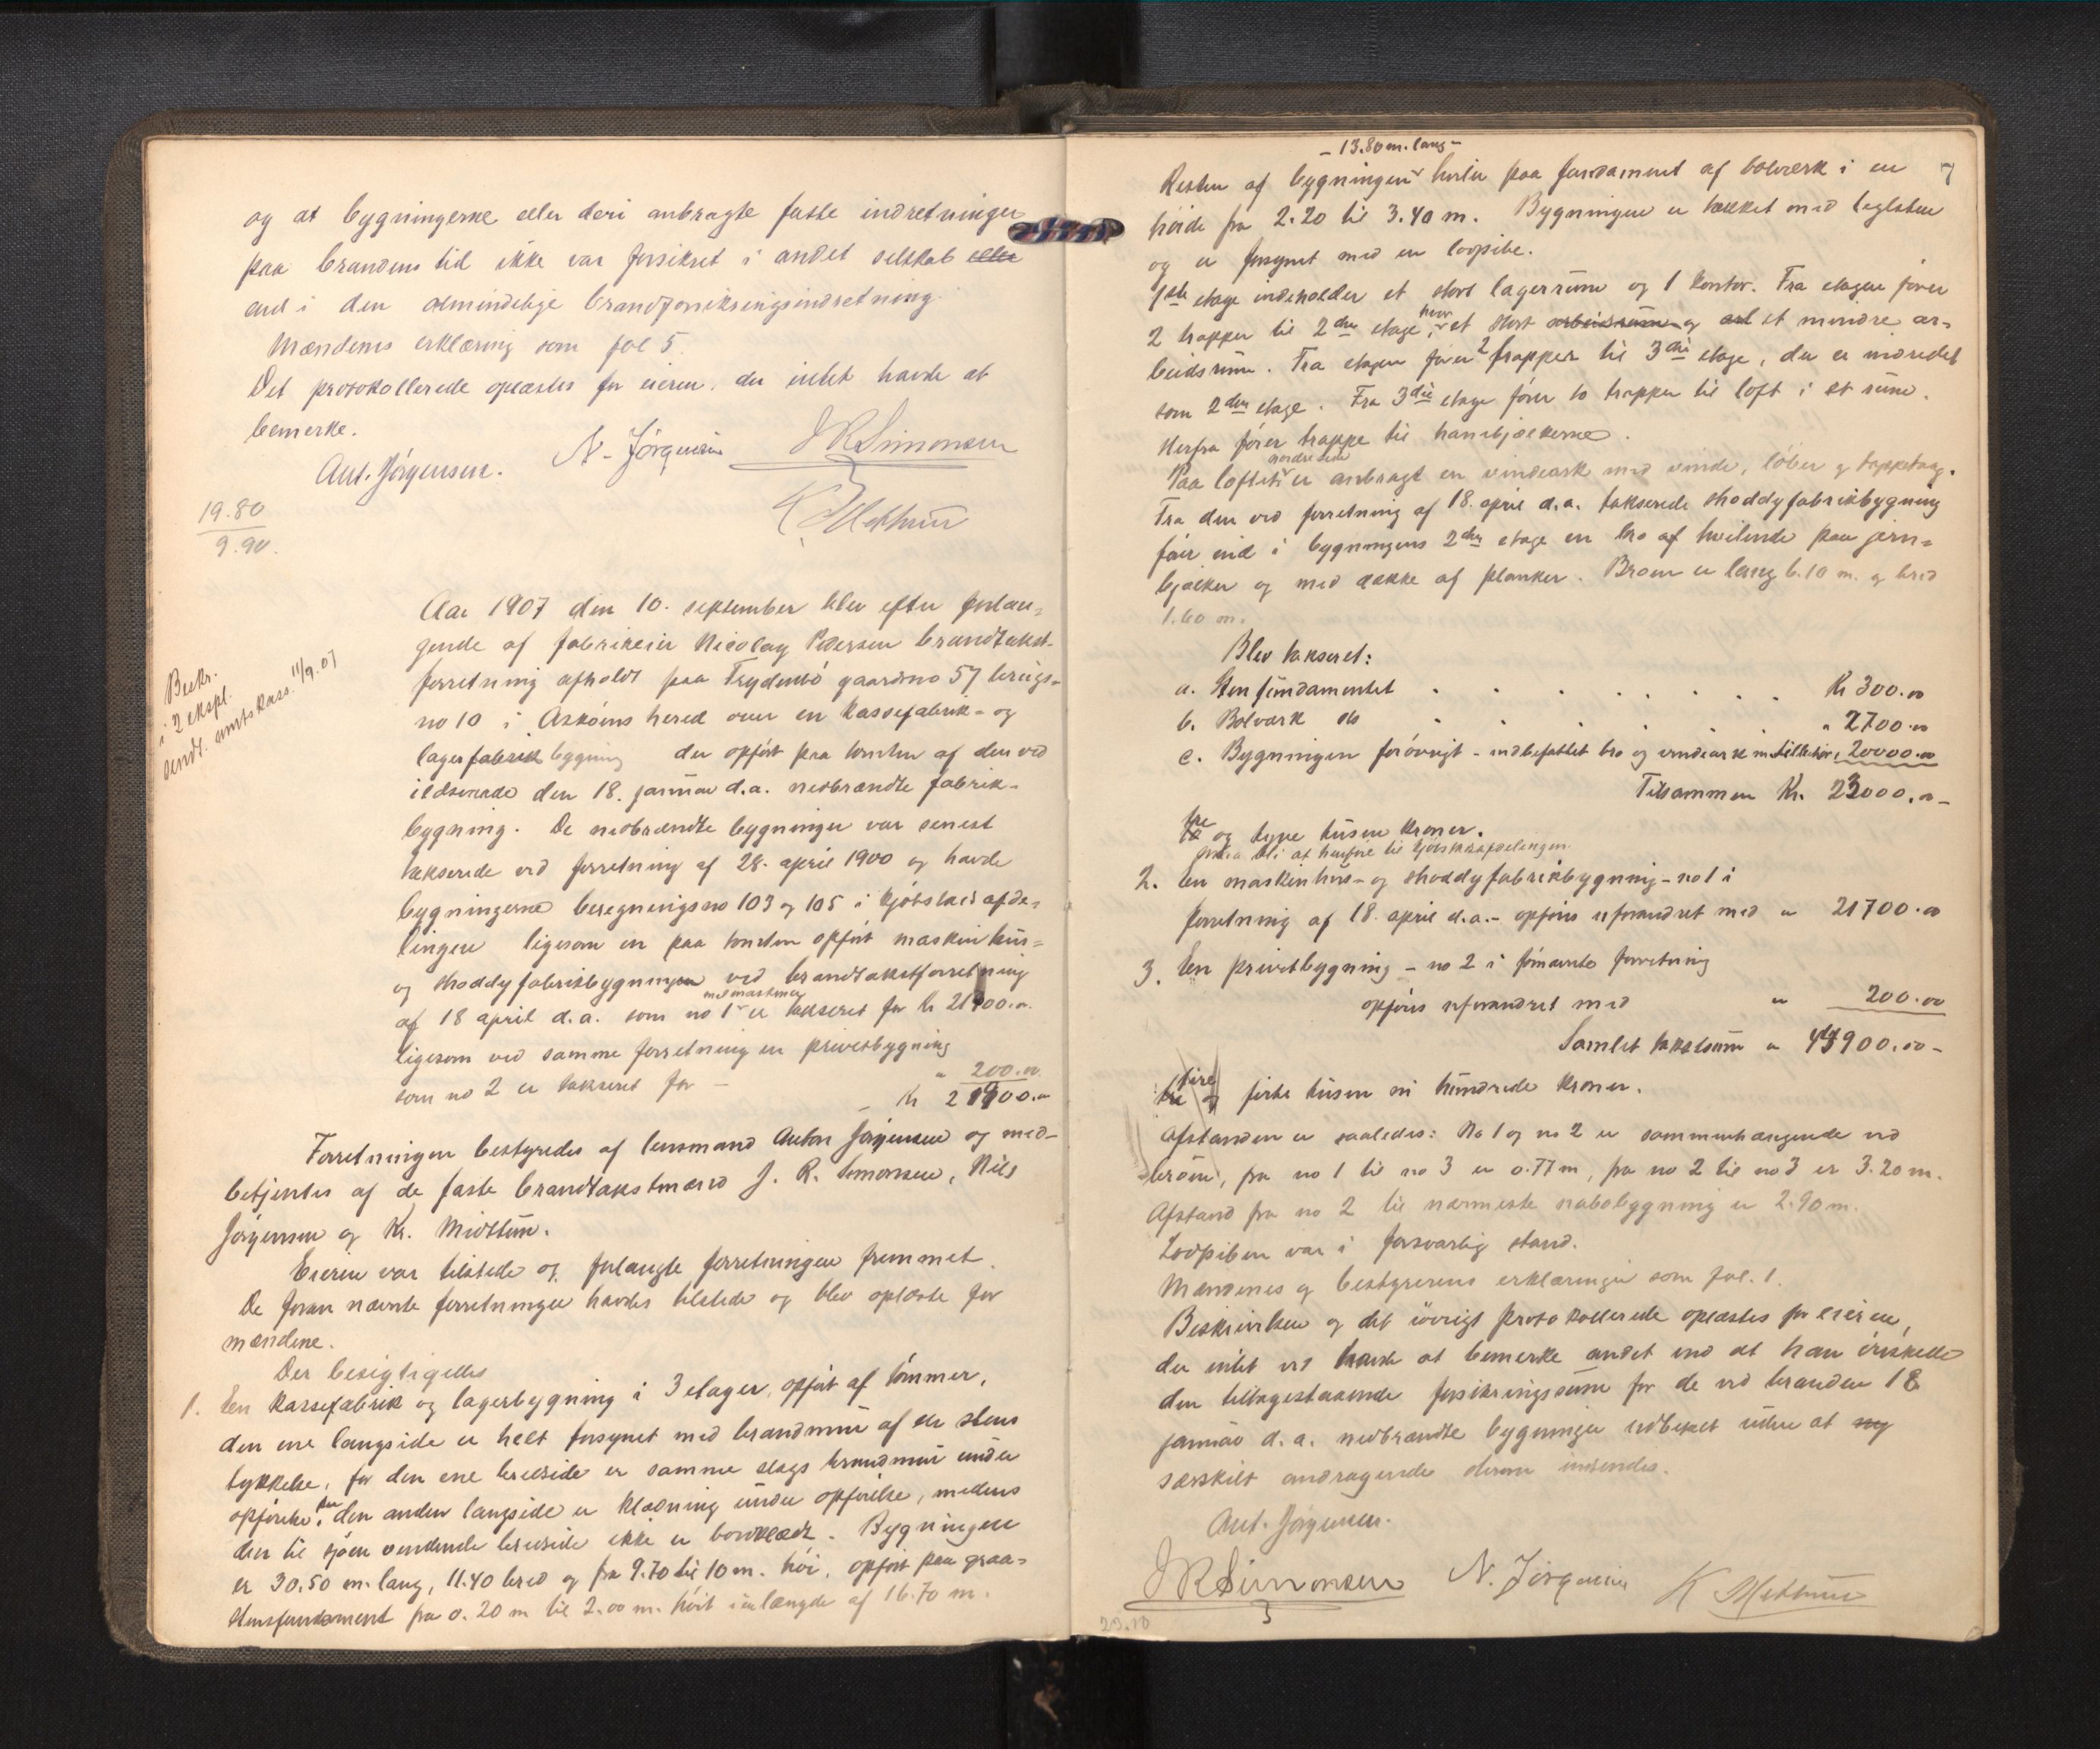 og at bygningerne eller deri anbragte faste indretninger
paa brandens tid ikke var forsikret i andet selskab eller
end i den almindelige brandforsikringsindretning.
Mændenes erklæring som fol 5.
Det protokollerede oplæstes for eieren, der intet havde at
bemerke.
Ant. Jørgensen. N. Jørgensen J R Simonsen
K Midttun
19.80
9.90.
Aar 1907 den 10. september blev efter forlan-
gende af fabrikeier Nicolay Pedersen brandtakst-
forretning afholdt paa Frydenbö gaardsno 57 brugs-
no 10 i Asköens hered over en kassefabrik- og
lagerfabrik bygning der opført paa tomten af den ved
ildsvaade den 18. januar d.a. nedbrændte fabrik-
bygning. De nedbrændte bygninger var senest
takserede ved forretning af 28. april 1900 og havde
bygningerne beregningsno 103 og 105 i kjöbstadsafde-
lingen ligesom en paa tomten opført maskinhus-
og shoddyfabrikbygningen ved brandtakstforretning
af 18 april d.a. som no 1 med maskineri er takseret for kr 21700.00
ligesom ved samme forretning en privetbygning
som no 2 er takseret for — " 200.00
kr 21900.00
Bekr.
i 2 ekspl.
sendt. amtskass. 11/9.07
Forretningen bestyredes af lensmand Anton Jørgensen og med-
betjentes af de faste brandtakstmænd J. R. Simonsen, Nils
Jørgensen og Kr. Midttun.
Eieren var tilstede og forlangte forretningen fremmet.
De foran nævnte forretninger havdes tilstede og blev oplæste for
mændene.
Der besigtigedes
1. En kassefabrik og lagerbygning i 3 etager, opført af tömmer,
den ene langside er helt forsynet med brandmur af en stens
tykkelse, for den ene bredside er samme slags brandmur under
opförelse, for den anden langside er klædning under opförelse, medens
den til sjöen vendende bredside ikke er bordklædt. Bygningen
er 30.50 m. lang, 11.40 bred og fra 9.70 til 10 m. höi, opfört paa graa-
stensfundament fra 0.20 m til 2.00 m. höit i en længde af 16.70 m.
7
- 13.80 m. lang -
Resten af bygningen hviler paa fundament af bolværk i en
höide fra 2.20 til 3.40 m. Bygningen er tækket med teglsten
og er forsynet med en lodpibe.
1ste etage indeholder et stort lagerrum og 1 kontor. Fra etagen fører
2 trapper til 2den etage, hvor et stort arbeidsrum og et mindre ar-
beidsrum. Fra etagen fører 2 trapper til 3die etage, der er indredet
som 2den etage. Fra 3die etage förer to trapper til loft i et rum.
Herfra förer trappe til hanebjælkerne.
Paa loftets nordre side er anbragt en vindeark med vinde, löber og tappetaug.
Fra den ved forretning af 18. april d.a. takserede shoddyfabrikbygning
förer ind i bygningens 2den etage en bro af hvilende paa jern-
bjælker og med dække af planker. Broen er lang 6.10 m. og bred
1.60 m.
Blev takseret:
a. Stenfundamentet . . . . . . . . . Kr 300.00
b. Bolværk do . . . . . . " 2700.00
c. Bygningen forövrigt - indbefattet bro og vindeark m. tilbehör, 20000.00
Tilsammen Kr. 23000.00 -
tre og tyve tusen kroner.
at henföre til kjöbstadsafdelingen
2. En maskinhus- og shoddyfabrikbygning - no 1 i
forretning af 18. april d.a. - opföres uforandret med " 21700.00
3. En privetbygning - no 2 i fornævnte forretning
opföres uforandret med " 200.00
Samlet takstsum " 44900.00 -
fire og firti tusen ni hundrede kroner.
Afstanden er saaledes: No 1 og no 2 er sammenhængende ved
broen, fra no 1 til no 3 er 0.77 m, fra no 2 til no 3 er 3.20 m.
Afstand fra no 2 til nærmeste nabobygning er 2.90 m.
Lodpiben var i forsvarlig stand.
Mændenes og bestyrerens erklæringer som fol. 1.
Beskrivelsen og det övrigt protokollerede oplæstes for eieren,
der intet ved havde at bemerke andet end at han önskede
den tilbagestaaende forsikringssum for de ved branden 18
januar d.a. nedbrændte bygninger udbetalt uden at ny
særskilt andragende derom indsendes.
Ant. Jørgensen.
J R Simonsen N. Jørgensen K Midttun
23.10